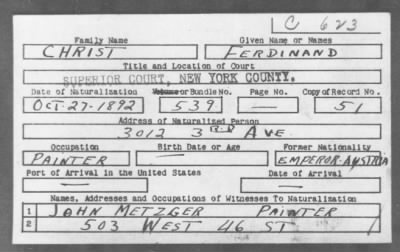 C 623
Family Name Given Name or Names
CHRIST FERDINAND
Title and Location of Court
SUPERIOR COURT, NEW YORK COUNTY.
Date of Naturalization Volume or Bundle No. Page No. Copy of Record No.
OCT-27-1892 539 — 51
Address of Naturalized Person
3012 3RD AVE
Occupation Birth Date or Age Former Nationality
PAINTER — EMPEROR-AUSTRIA
Port of Arrival in the United States Date of Arrival
— —
Names, Addresses and Occupations of Witnesses To Naturalization
1 JOHN METZGER PAINTER
2 503 WEST 46 ST